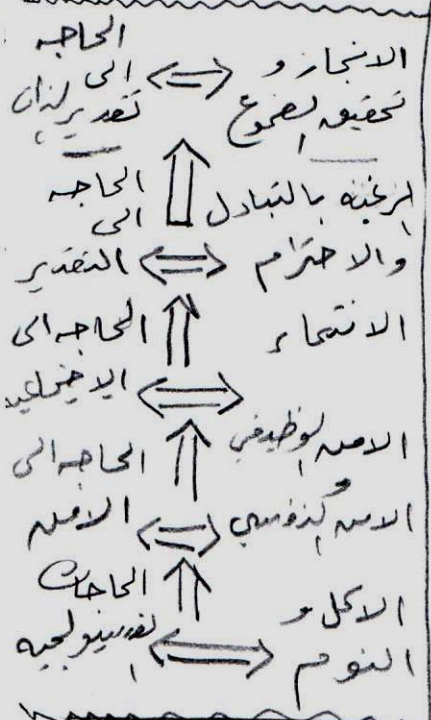 الانجاز و
تحقيق الطموع
الحاجه
الى
تقدير لذات
الرغبه بالتبادل
والاحترام
الحاجه
الى
التقدير
الانتماء
الحاجه الى
الاجتماعيه
الامن الوظيفي
و
الامن النفسي
الحاجه الى
الامن
الاكل و
النوم
الحاجات
الفسيولجيه